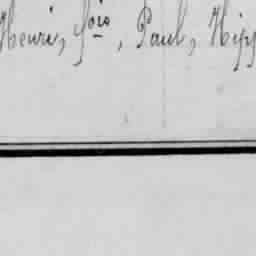 Henri, fois, Paul, Hipp